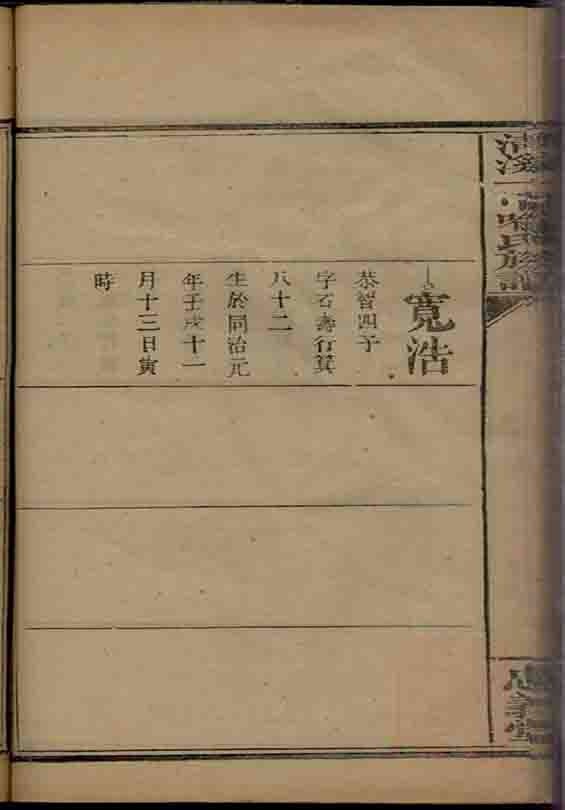 寬浩
恭智四子
字石壽行箕
八十二
生於同治元
年壬戌十一
月十三日寅
時
氏族譜
義堂